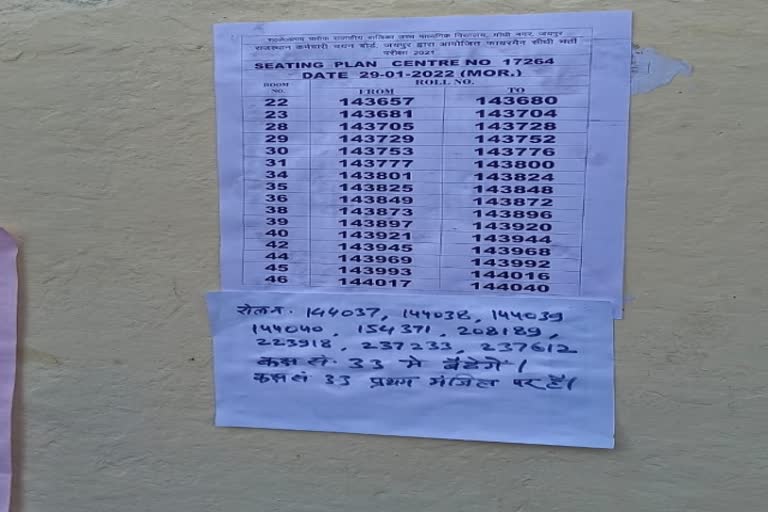 राजकीय बालिका उच्च माध्यमिक विद्यालय, गांधी नगर, जयपुर
राजस्थान कर्मचारी चयन बोर्ड, जयपुर द्वारा आयोजित फायरमैन सीधी भर्ती
परीक्षा 2021
SEATING PLAN CENTRE NO 17264
DATE 29-01-2022 (MOR.)
ROOM NO. ROLL NO.
FROM TO
22 143657 143680
23 143681 143704
28 143705 143728
29 143729 143752
30 143753 143776
31 143777 143800
34 143801 143824
35 143825 143848
36 143849 143872
38 143873 143896
39 143897 143920
40 143921 143944
42 143945 143968
44 143969 143992
45 143993 144016
46 144017 144040
रोल नं. 144037, 144038, 144039
144040, 154371, 208189,
223918, 237233, 237612
कक्ष सं. 33 मे बैठेगे।
कक्ष सं 33 प्रथम मंजिल पर है।